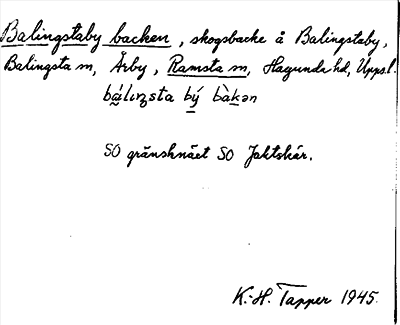 Balingstaby backen, skogsbacke å Balingstaby,
Balingsta m, Årby, Ramsta m, Hagunda hd, Upps.l.
bá̤lɩŋsta bý bàkən
SO gränshnäet SO Jaktskär.
K.-H. Tapper 1945.